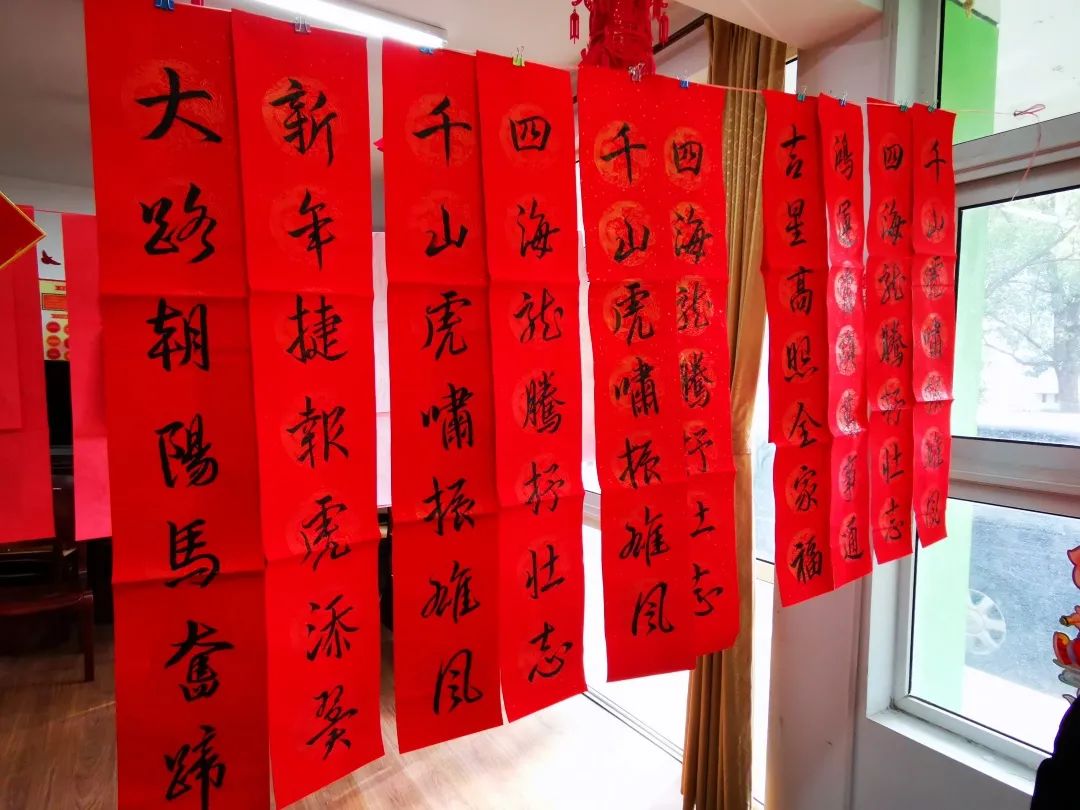 大路朝陽馬奮蹄
新年捷報虎添翼
千山虎嘯振雄風
四海龍騰抒壯志
千山虎嘯振雄風
四海龍騰抒壯志
吉星高照全家福
鴻運事通
四海龍騰抒壯志
千山虎嘯振雄風